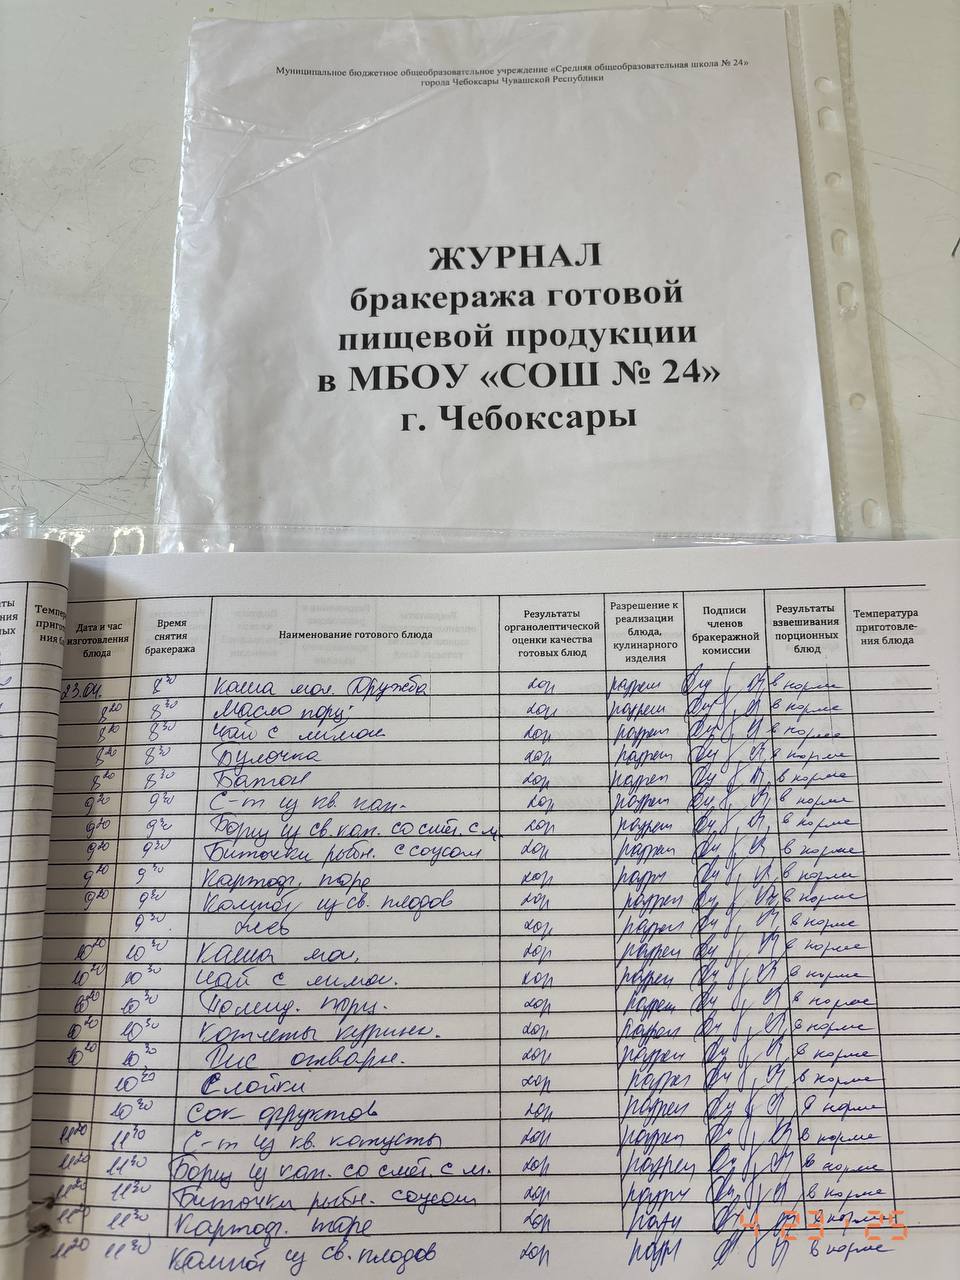 Муниципальное бюджетное общеобразовательное учреждение «Средняя общеобразовательная школа № 24»
города Чебоксары Чувашской Республики
ЖУРНАЛ
бракеража готовой
пищевой продукции
в МБОУ «СОШ № 24»
г. Чебоксары
Дата и час изготовления блюда
Время снятия бракеража
Наименование готового блюда
Результаты органолептической оценки качества готовых блюд
Разрешение к реализации блюда, кулинарного изделия
Подписи членов бракеражной комиссии
Результаты взвешивания порционных блюд
Температура приготовле-ния блюда
23.04. 8 30 Каша мол. Дружба хор разреш в норме
8 20 8 30 Масло порц. хор разреш в норме
8 20 8 30 Чай с лимон хор разреш в норме
8 20 8 30 Булочка хор разреш в норме
8 20 8 30 Батон хор разреш в норме
9 20 9 30 С-т из кв. кап. хор разреш в норме
9 20 9 30 Борщ из св. кап. со смет. с м. хор разреш в норме
9 20 9 30 Биточки рыбн. с соусом хор разреш в норме
9 20 9 30 Картоф. пюре хор разр в норме
9 20 9 30 Компот из св. плодов хор разреш в норме
9 30 Хлеб хор разреш в норме
10 20 10 30 Каша мол. хор разреш в норме
10 20 10 30 Чай с лимон. хор разреш в норме
10 20 10 30 Помид. порц. хор разреш в норме
10 20 10 30 Котлеты курин. хор разреш в норме
10 20 10 30 Рис отварн. хор разреш в норме
10 30 Слойки хор разреш в норме
10 30 Сок фруктов хор разреш в норме
11 20 11 30 С-т из кв. капусты хор разреш в норме
11 20 11 30 Борщ из кап. со смет. с м. хор разреш в норме
11 20 11 30 Биточки рыбн. соусом хор разр в норме
11 20 11 30 Картоф. пюре хор разр в норме
11 20 11 30 Компот из св. плодов хор разр в норме
4 23 '25